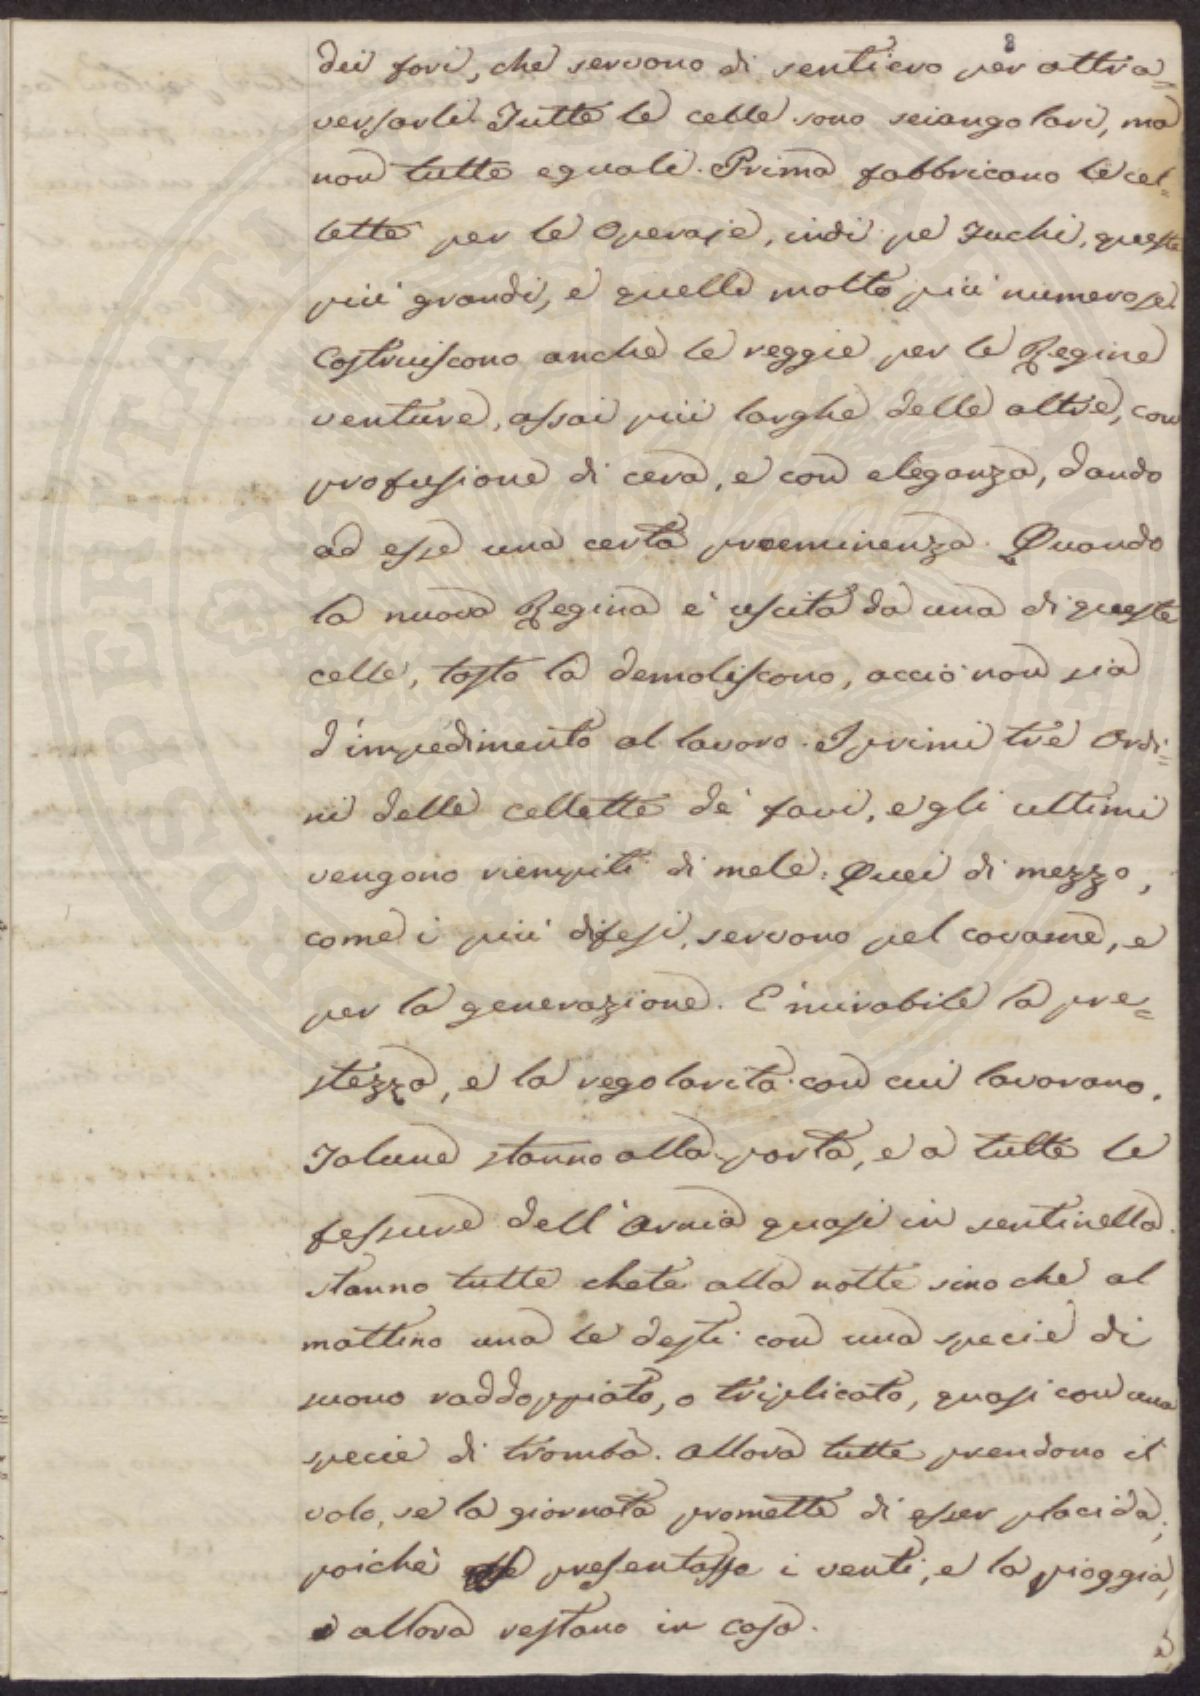 8
dei fori, che servono di sentiero per attra=
versarli. Tutte le celle sono seiangolari, ma
non tutte eguali. Prima fabbricano le cel=
lette per le Operaje, indi pe' Fuchi, queste
più grandi, e quelle molto più numerose.
Costruiscono anche le reggie per le Regine
venture, assai più larghe delle altre, con
profusione di cera, e con eleganza, dando
ad esse una certa preeminenza. Quando
la nuova Regina è uscita da una di queste
celle, tosto la demoliscono, acciò non sia
d'impedimento al lavoro. I primi tre Ordi=
ni delle cellette de' favi, e gli ultimi
vengono riempiti di mele: Quei di mezzo,
come i più difesi, servono pel covame, e
per la generazione. E' mirabile la pre=
stezza, e la regolarità con cui lavorano.
Talune stanno alla porta, e a tutte le
fessure dell'Arnia quasi in sentinella.
stanno tutte chete alla notte sino che al
mattino una le desti con una specie di
suono raddoppiato, o triplicato, quasi con una
specie di tromba. Allora tutte prendono il
volo, se la giornata promette di esser placida;
poichè presentasse i venti, e la pioggia,
allora restano in casa.